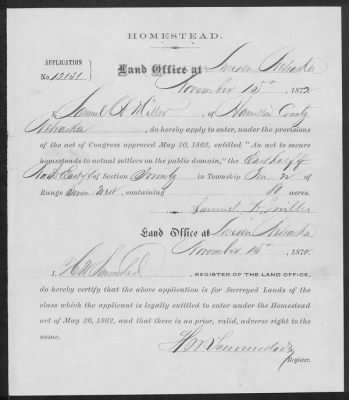 HOMESTEAD.
APPLICATION
No. 12151
Land Office at Lincoln Nebraska
November 15th, 1872.
I, Samuel D Miller, of Hamilton County
Nebraska do hereby apply to enter, under the provisions
of the act of Congress approved May 20, 1862, entitled "An act to secure
homesteads to actual settlers on the public domain," the East half of
of Section Twenty in Township Ten N of
Range Seven West, containing 80 acres.
Samuel Miller
Land Office at Lincoln Nebraska
November 15th, 1872.
I, , REGISTER OF THE LAND OFFICE,
do hereby certify that the above application is for Surveyed Lands of the
class which the applicant is legally entitled to enter under the Homestead
act of May 20, 1862, and that there is no prior, valid, adverse right to the
same.
Register.